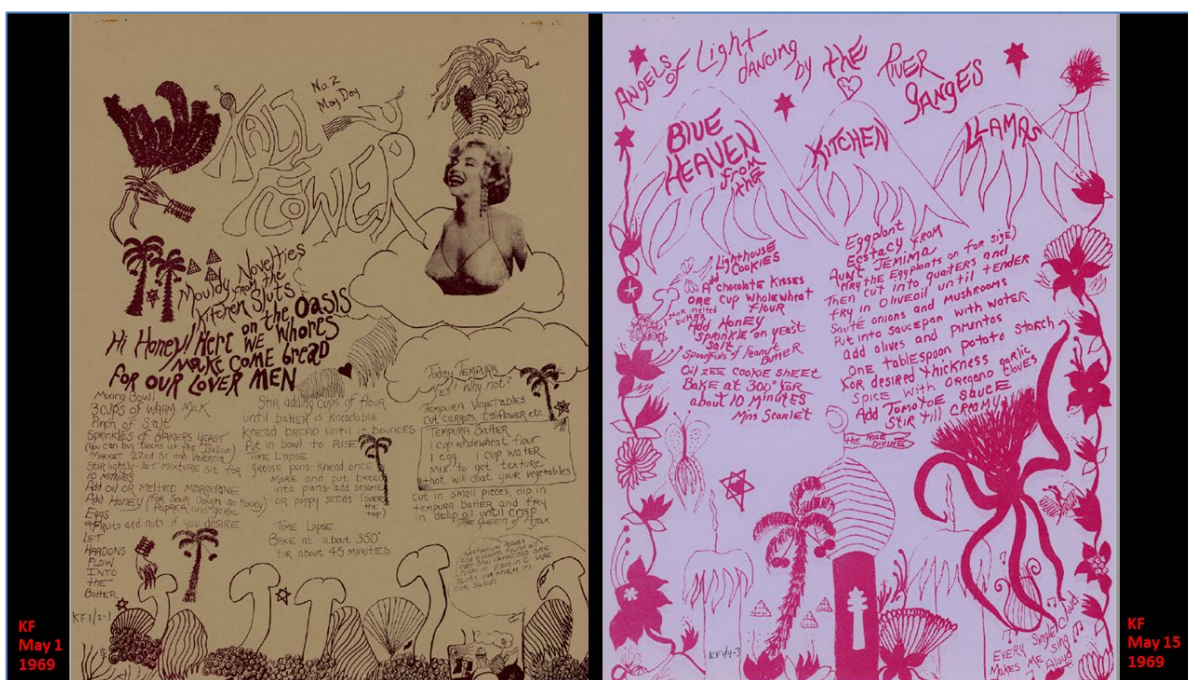 No. 2
May Day
KALI
FLOWER
Mouldy Novelties
from the
Kitchen Sluts
Hi Honey! Here on the Oasis
we Whores
make come bread
FOR OUR LOVER MEN
Mixing Bowl
3 cups of WARM MILK
Pinch of Salt
Sprinkles of BAKERS YEAST
(You can buy at the Italian
MARKET 22nd St and Valencia
Stir lightly - let mixture sit for
10 minutes
Add oil or MELTED MARGERINE
Add Honey (for Sour Dough, no honey)
Eggs
Fruits and nuts if you desire
LET
HARDONS
FLOW
INTO
the
Batter
KF1/2-1
Stir adding cups of flour
until batter is kneadable
KNEAD BREAD UNTIL it bounces
Put in bowl to RISE
TIME LAPSE
grease pans. Knead once
MORE and put bread
into pans. add sesame
or poppy seeds (over
the
top)
TIME LAPSE
BAKE at about 350°
for about 45 minutes
Today TEMPURA
Yes! Why not?
TEMPURA Vegetables
cut carrots, califlower etc
TEMPURA Batter
1 cup wholewheat flour
1 egg 1 cup water
MIX to get texture
that will coat your vegetables
cut in small pieces, dip in
tempura batter and fry
in deep oil until crisp
THE QUEEN of
KF
May 1
1969
ANGELS of Light dancing by the RIVER
GANGES
BLUE
HEAVEN
from
the
KITCHEN
LLAMAS
Lighthouse
COOKIES
add
A chocolate KISSES
ONE CUP wholewheat
flour
Add HONEY
sprinkle on yeast
salt
Spoonfuls of Peanut
Butter
Oil ZEE COOKIE SHEET
BAKE at 300° for
about 10 minutes
Miss Scarlet
Eggplant
Ecstacy FROM
AUNT JEMIMA
(TRY the Eggplants on for size)
Then cut into quarters and
fry in OLIVEOIL until tender
Sauté onions and mushrooms
Put into saucepan with WATER
add olives and pimentos
ONE tablespoon potato starch
for desired thickness
garlic
SPICE with OREGANO cloves
Add TOMATOE SAUCE
STIR till CREAMY
the ROSE
DIVINE
KF1/4-3
EVERY Single
MAKES ME sing
Aloud
KF
May 15
1969